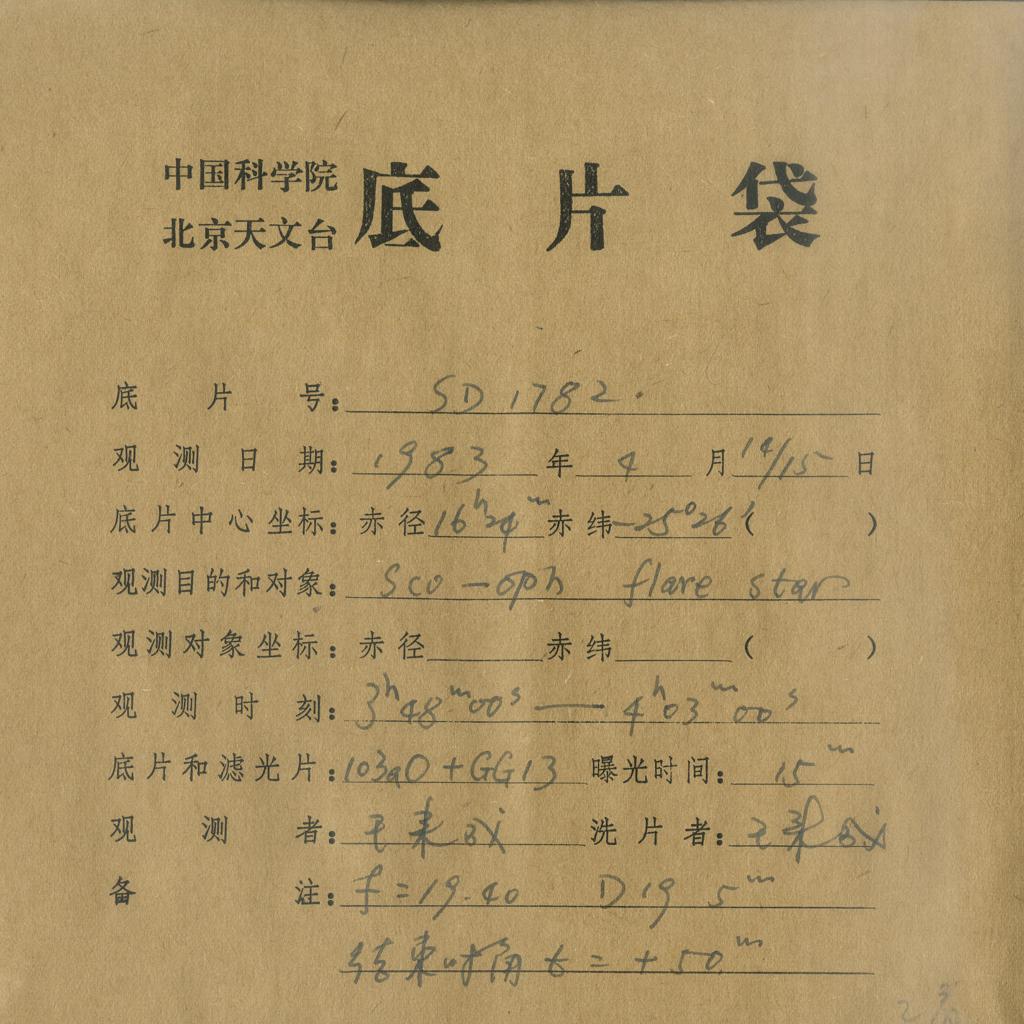 中国科学院
北京天文台 底片袋
底片号: SD 1782.
观测日期: 1983 年 4 月 14/15 日
底片中心坐标: 赤径 16ʰ24ᵐ 赤纬 -25°26′ ( )
观测目的和对象: Sco — oph flare star
观测对象坐标: 赤径 赤纬 ( )
观测时刻: 3ʰ48ᵐ00ˢ — 4ʰ03ᵐ00ˢ
底片和滤光片: 103aO + GG13 曝光时间: 15ᵐ
观测者: 王 洗片者: 王
备注: f = 19.40 D19 5ᵐ
结束时角 t = +50ᵐ